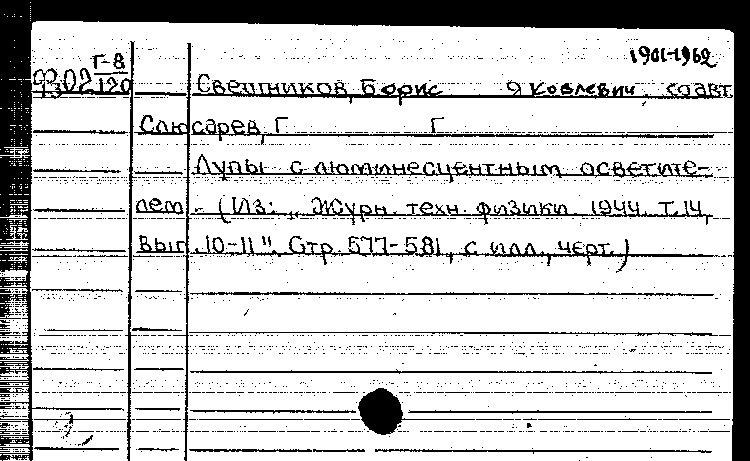 1901-1962
Г-8
9302 120 Свешников, Борис Яковлевич, соавт.
Слюсарев, Г Г
Лупы с люминесцентным осветите-
лем - (Из: „Журн. техн. физики 1944. Т. 14,
вып. 10-11". Стр. 577-581, с илл., черт.)